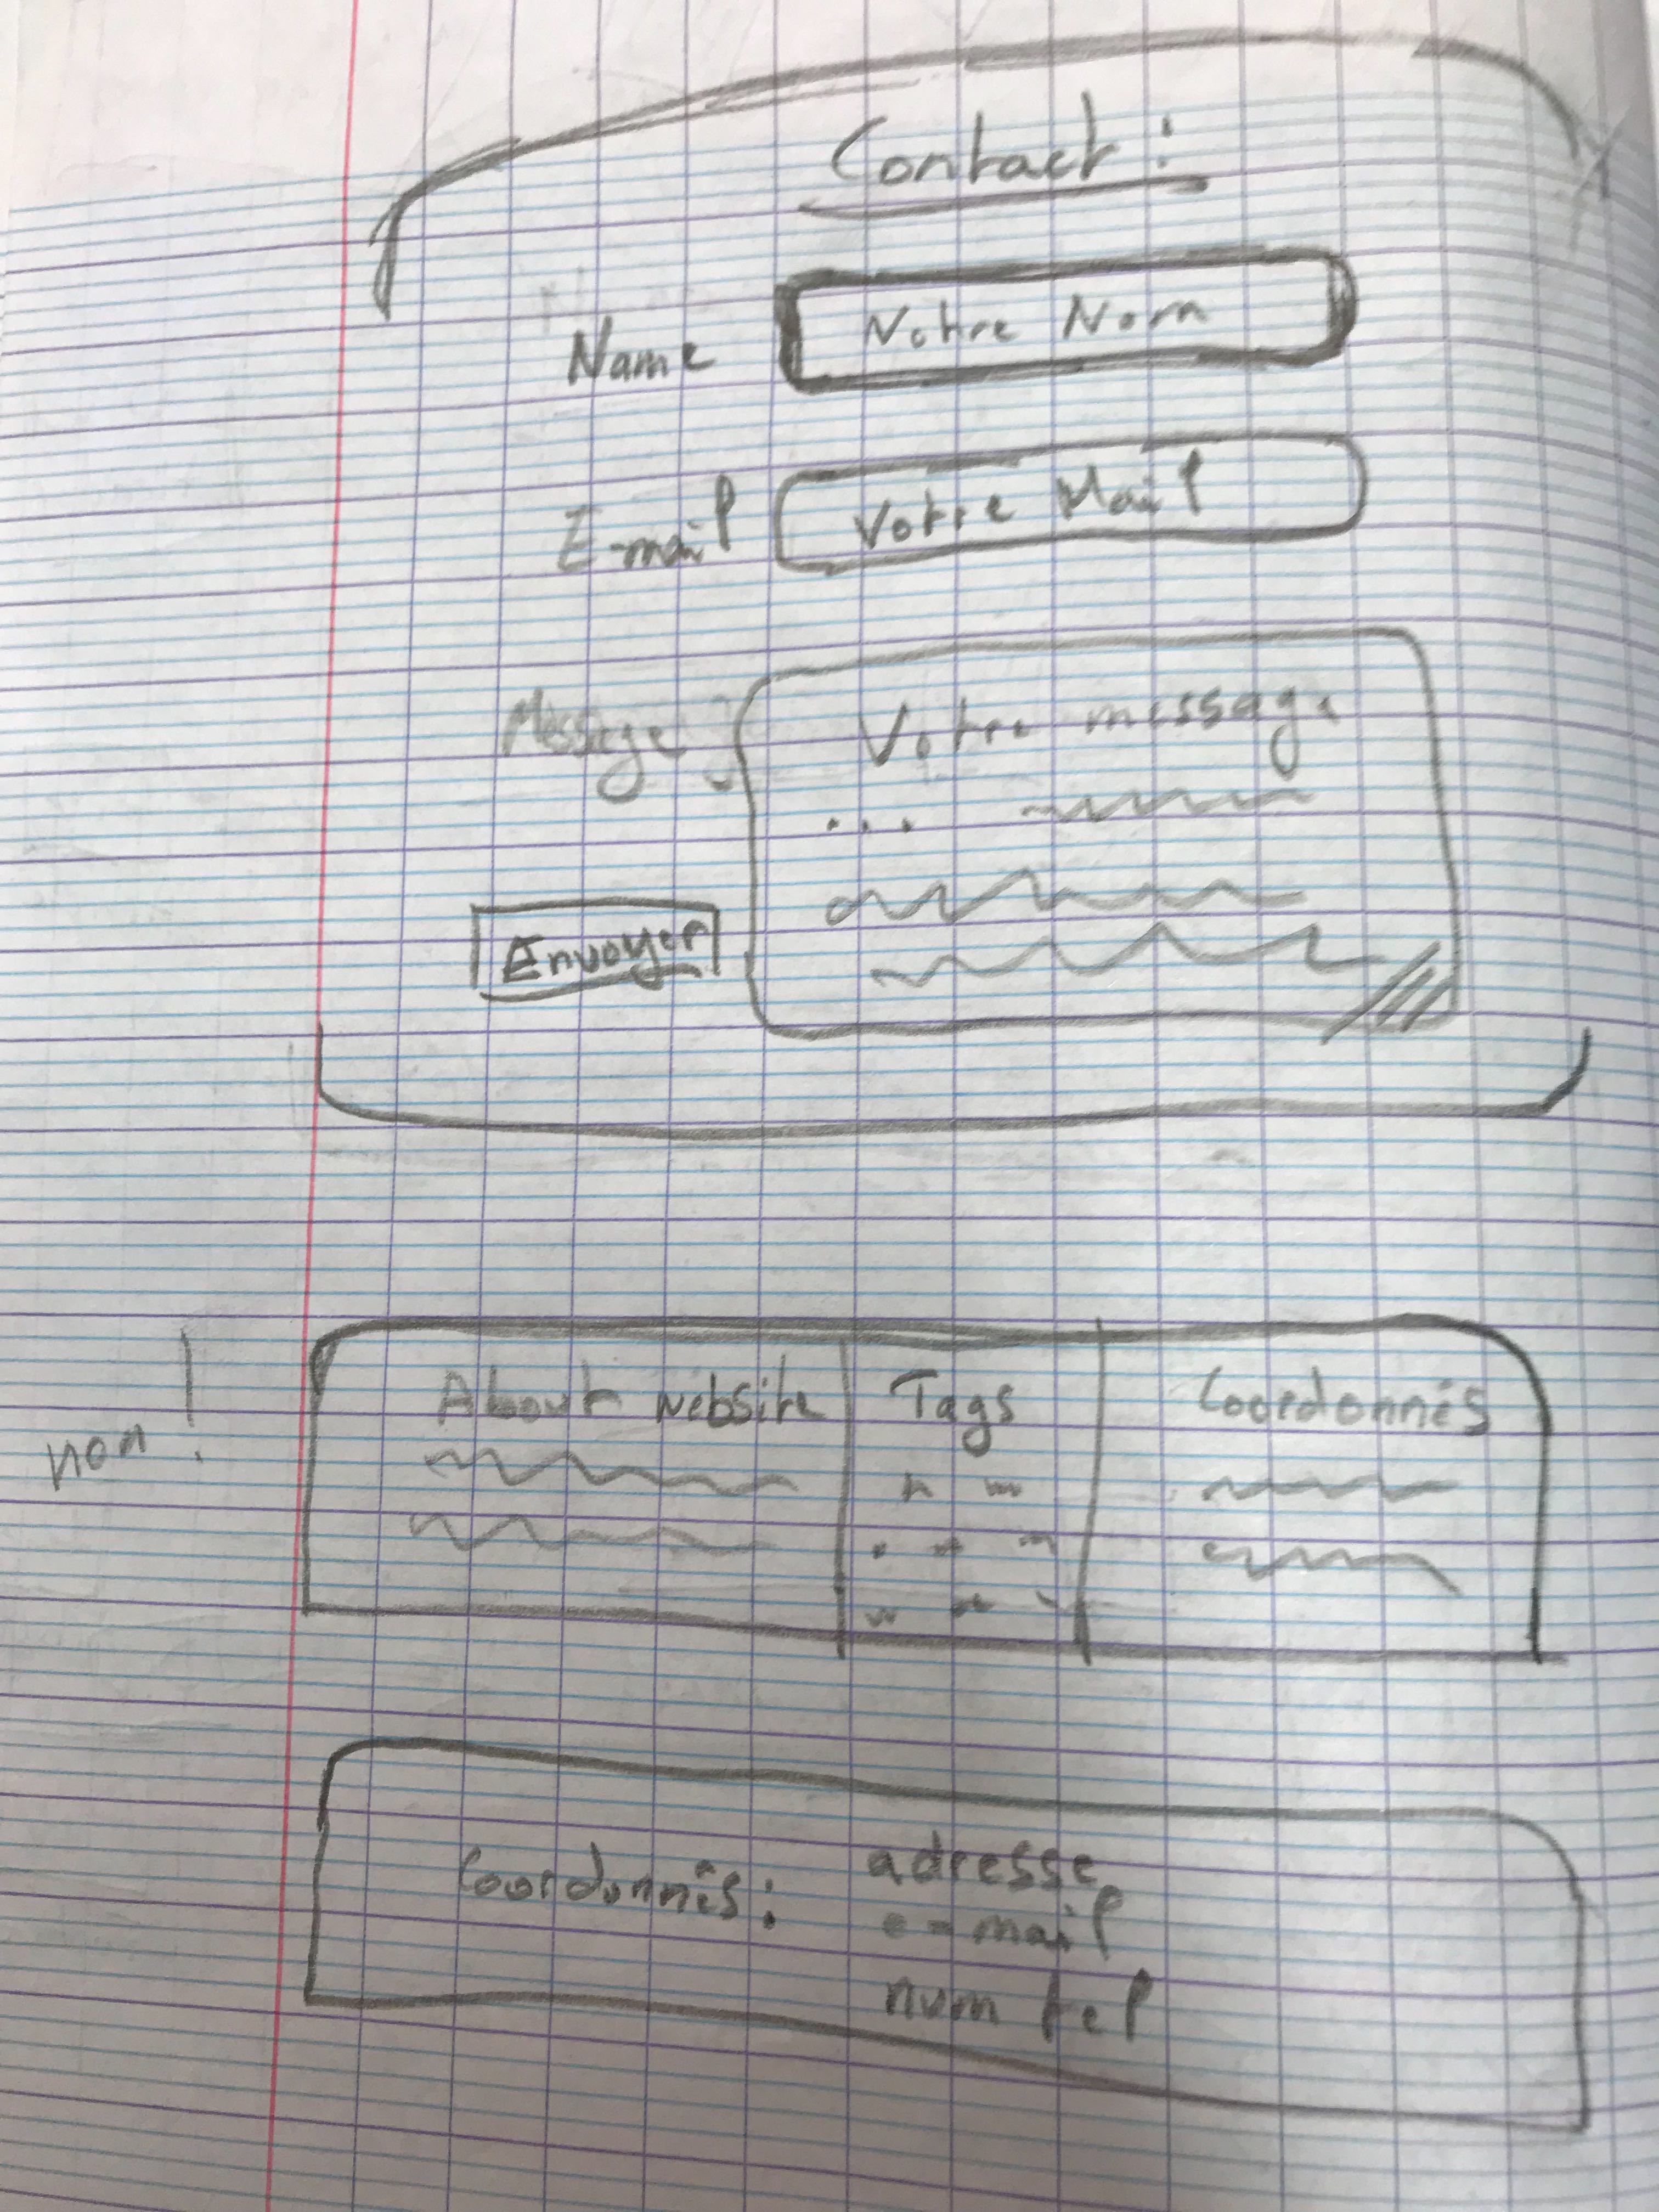 Contact :
Name
Votre Nom
E-mail
Votre Mail
Message
Votre message
...
Envoyer
non !
About website
Tags
Coordonnés
Coordonnés :
adresse
e-mail
num tel